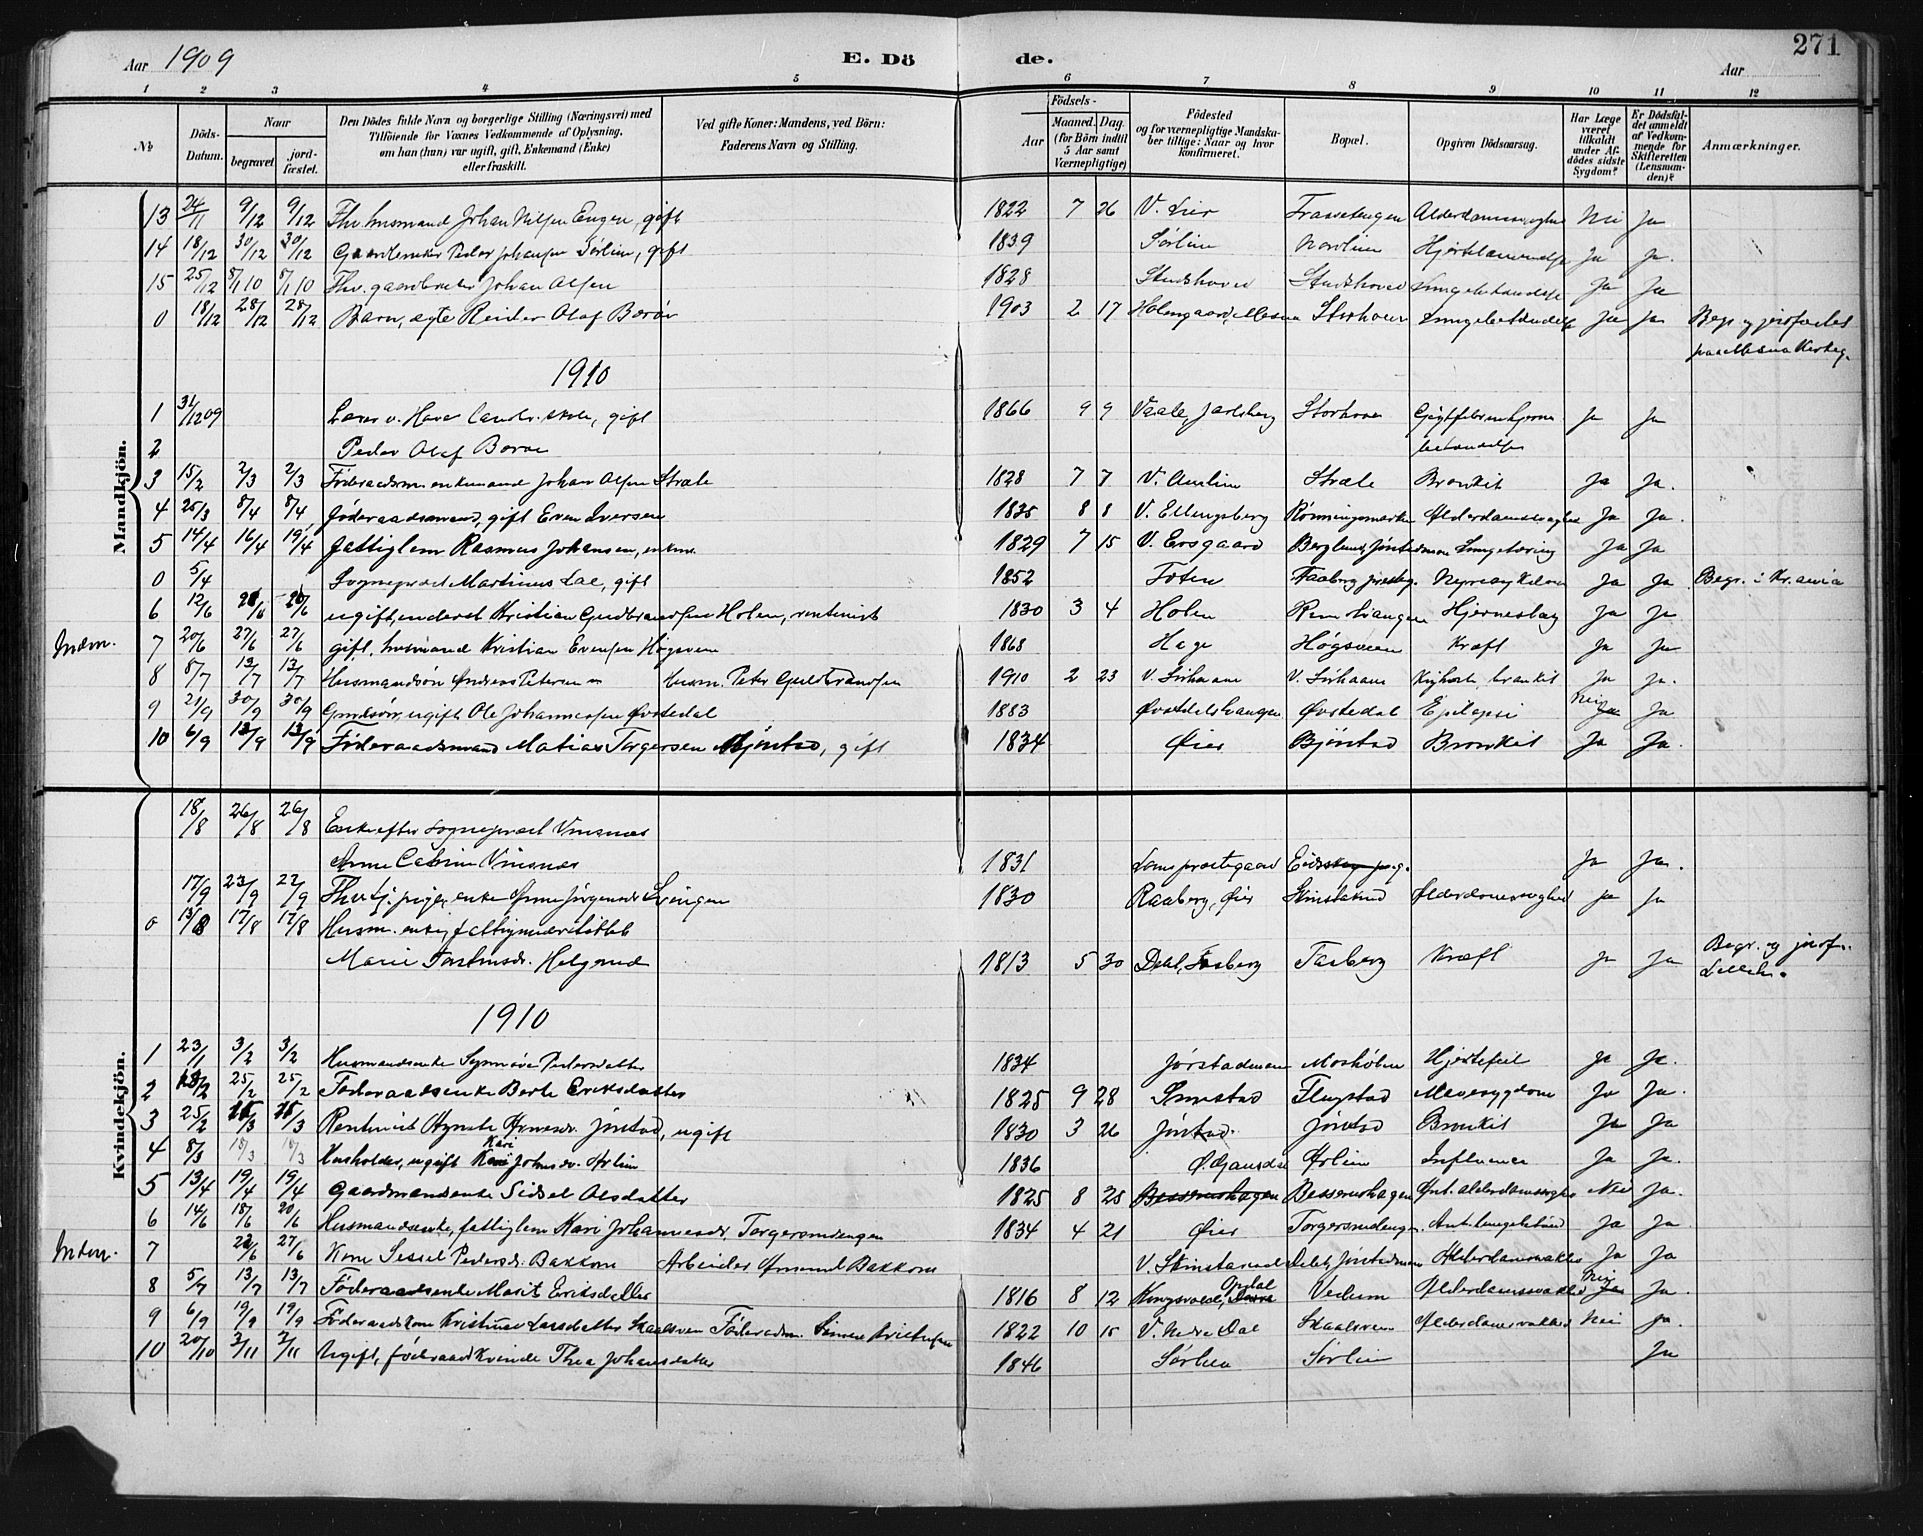 271
Aar 1909 E. Dö de. Aar
1 2 3 4 5 6 7 8 9 10 11 12
No Döds-Datum. Naar begravet. jordfæstet. Den Dödes fulde Navn og borgerlige Stilling (Næringsvei) med Tilföiende for Voxnes Vedkommende af Oplysning, om han (hun) var ugift, gift, Enkemand (Enke) eller fraskilt. Ved gifte Koner: Mandens, ved Börn: Faderens Navn og Stilling. Födsels- Aar Maaned. Dag. (for Börn indtil 5 Aar samt Værnepligtige) Födested og for værnepligtige Mandskaber tillige: Naar og hvor konfirmeret. Bopæl. Opgiven Dödsaarsag. Har Læge været tilkaldt under Afdödes sidste Sygdom? Er Dödsfaldet anmeldt af Vedkommende for Skifteretten (Lensmanden)? Anmærkninger.
Mandkjön.
13 24/11 9/12 9/12 Fhv. husmand Johan Nilsen Engen, gift 1822 7 26 V. Lier Alderdomssvaghed Nei Ja
14 18/12 30/12 30/12 Peder Johansen Sørlien, gift 1839 Sørlien Nordlien Ja Ja.
15 25/12 8/1 10 8/1 10 Fhv. gaardbruker Johan Olsen 1828 Studshoved Studshoved Lungebetændelse Ja Ja
0 18/12 28/12 28/12 Barn, ægte Reidar Olaf Borøe 1903 2 17 Holmgaard, Mesna Storhove Lungebetændelse Ja Ja Begr. og jordfæstet
paa Mesna Kirkeg.
1910
1 31/12 09 Lærer v. Hove landbr. skole, gift 1866 9 9 Vaale, Jarlsberg Storhove Ja Ja
2 Peder Olaf Borøe betændelse
3 15/2 2/3 2/3 Föderaadsm. enkemand Johan Olsen Stræte 1828 7 7 V. Aulien Stræte Bronkit Ja Ja.
4 25/3 8/4 8/4 Föderaadsmand, gift Even Iversen 1835 8 8 V. Ellingsberg Rønningsmarken Alderdomssvaghed Ja Ja.
5 14/4 16/4 19/4 Fattiglem Rasmus Johansen, enkm. 1829 7 15 V. Ersgaard Berglund, Lungetæring Ja Ja
0 5/4 Sogneprest Martinus Lae, gift 1852 Toten Faaberg presteg. Ja Ja Begr. i Kr.ania
6 12/6 21/6 21/6 ugift, Kristian Gudbrandsen Holen, rentenist 1830 3 4 Holen Hjerneslag Ja Ja
Indm. 7 20/6 27/6 27/6 gift, husmand Kristian Evensen Høgsveen 1868 Hage Høgsveen Kræft Ja Ja
8 8/7 12/7 12/7 Husmandsøn Andreas Petersen Husm. Peter Guldbrandsen 1910 2 23 V. Sørhaave V. Sørhaave Kighoste, bronkit Ja Ja.
9 21/9 30/9 30/9 ugift Ole Johannessen Øvstedal 1883 Øvstedal Epilepsi Nei Ja
10 6/9 13/9 13/9 Föderaadsmand Matias Torgersen Bjønstad, gift 1834 Øier Bjønstad Bronkit Ja Ja.
Kvindekjön.
18/8 26/8 26/8 Enke efter Sogneprest Vinsnes
Anne Catrine Vinsnes 1831 Lom prestegaard Ja Ja.
17/9 23/9 22/9 enke Anne Jørgensdr. Svingen 1830 Raaberg, Øier Alderdomssvaghed Ja Ja
0 13/8 17/8 17/8 Husm. enke, fattigunderstøttet
Marie Torstensdr. Helgerud 1813 5 30 Dal, Faaberg Faaberg Kræft Ja Ja Begr. og jordf.
Lilleh.
1910
1 23/1 3/2 3/2 Husmandsenke Synnøve Pedersdatter 1834 Jørstadmoen Mosholen Hjertefeil Ja Ja.
2 18/2 25/2 25/2 Föderaadsenke Berte Eriksdatter 1825 9 28 Smestad Flugstad Mavesygdom Ja Ja.
3 25/2 Rentenist Agnete Jønstad, ugift 1830 3 26 Jønstad Jønstad Bronkit Ja Ja
4 8/3 18/3 18/3 Husholder, ugift Kari Johnsdr. Ørlien 1836 Ørlien Influensa Ja Ja.
5 13/4 19/4 19/4 Gaardmandsenke Sidsel Olsdatter 1825 8 25 Besserudhagen Besserudhagen Ant. alderdomssvaghed Nei Ja.
6 14/6 18/6 20/6 Husmandsenke, fattiglem Kari Johannesdr. Torgersrudengen 1834 4 21 Øier Torgersrudengen Ant. lungebetænd Ja Ja
Indm. 7 22/6 27/6 Kone Sessel Pedersdr. Bakkom Arbeider Amund Bakkom Alderdomssvakhed Ja Ja
8 5/7 13/7 13/7 Föderaadsenke Marit Eriksdatter 1816 8 12 Kongsvold, Opdal Vedum Alderdomssvakhed Nei Ja.
9 6/9 19/9 19/9 Föderaadskone Kristine Larsdatter Skaalsveen Föderaadsm. Simen Kristiansen 1822 10 15 V. Nedre Dal Skaalsveen Alderdomssvakhed Nei Ja.
10 20/10 3/11 3/11 Ugift, föderaadskvinde Thea Johansdatter 1846 Sørlien Sørlien Ja